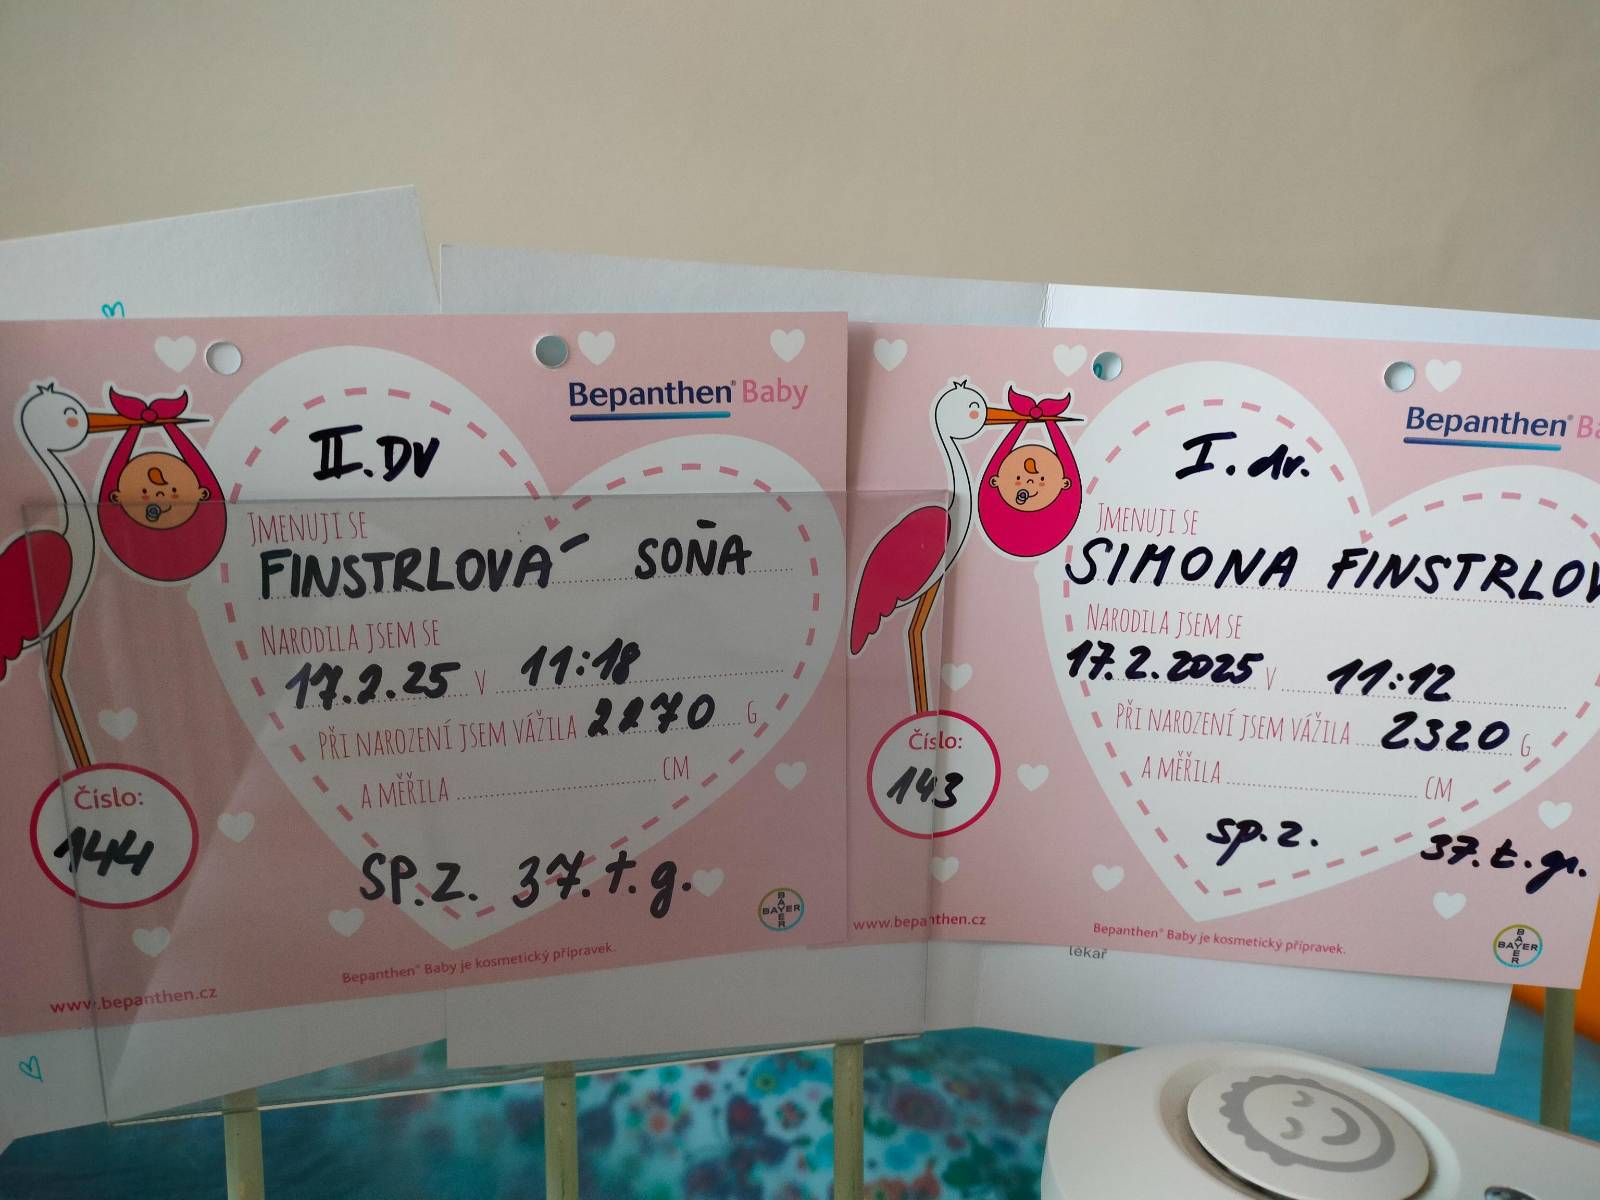 Bepanthen® Baby
II. DV
JMENUJI SE
FINSTRLOVÁ SOŇA
NARODILA JSEM SE
17.2.25 V 11:18
PŘI NAROZENÍ JSEM VÁŽILA 2270 G
A MĚŘILA CM
Číslo:
144
SP.Z. 37.t.g.
BAYER
BAYER
Bepanthen® Baby je kosmetický přípravek.
www.bepanthen.cz
Bepanthen® Ba
I. dv.
JMENUJI SE
SIMONA FINSTRLOV
NARODILA JSEM SE
17.2.2025 V 11:12
PŘI NAROZENÍ JSEM VÁŽILA 2320 G
A MĚŘILA CM
Číslo:
143
sp.z. 37.t.gr.
BAYER
BAYER
www.bepanthen.cz
Bepanthen® Baby je kosmetický přípravek.
lékař